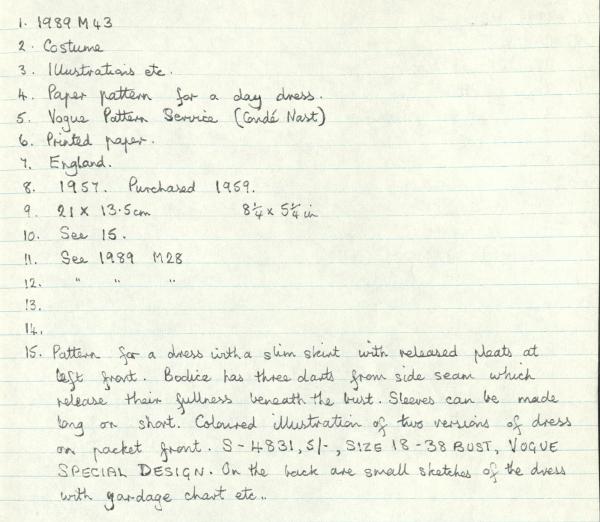 1. 1989 M43
2. Costume
3. Illustrations etc.
4. Paper pattern for a day dress.
5. Vogue Pattern Service (Condé Nast)
6. Printed paper.
7. England.
8. 1957. Purchased 1959.
9. 21 x 13.5cm 8¼ x 5¼ in
10. See 15.
11. See 1989 M28
12. " " "
13.
14.
15. Pattern for a dress with a slim skirt with released pleats at
left front. Bodice has three darts from side seam which
release their fullness beneath the bust. Sleeves can be made
long or short. Coloured illustration of two versions of dress
on packet front. S-4831, 5/-, SIZE 18-38 BUST, VOGUE
SPECIAL DESIGN. On the back are small sketches of the dress
with yardage chart etc..